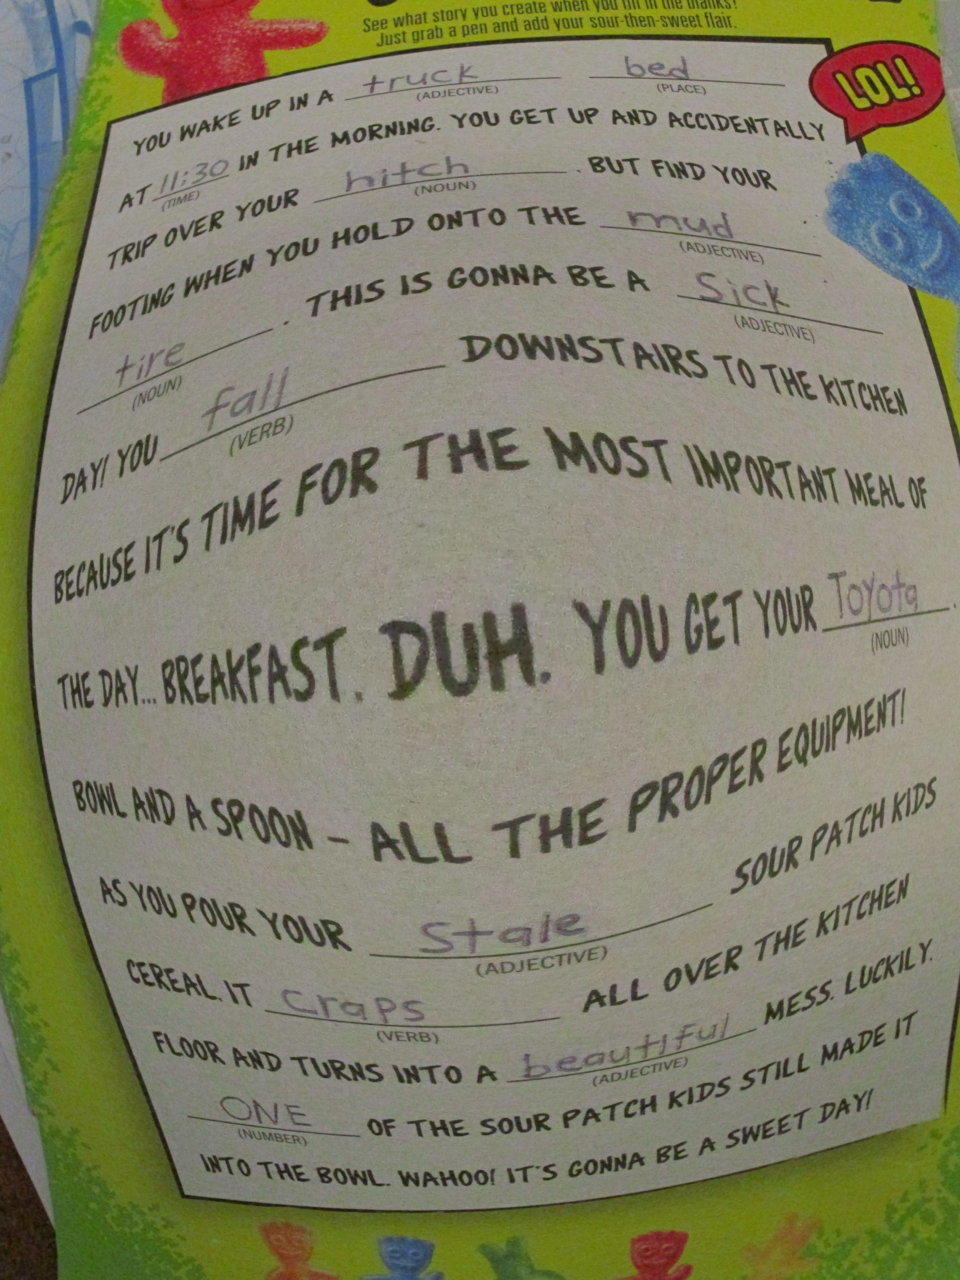 See what story you create when you fill in the blanks!
Just grab a pen and add your sour-then-sweet flair.
LOL!
YOU WAKE UP IN A truck bed
(ADJECTIVE) (PLACE)
AT 11:30 IN THE MORNING. YOU GET UP AND ACCIDENTALLY
(TIME)
TRIP OVER YOUR hitch . BUT FIND YOUR
(NOUN)
FOOTING WHEN YOU HOLD ONTO THE mud
(ADJECTIVE)
tire . THIS IS GONNA BE A Sick
(NOUN) (ADJECTIVE)
DAY! YOU fall DOWNSTAIRS TO THE KITCHEN
(VERB)
BECAUSE IT'S TIME FOR THE MOST IMPORTANT MEAL OF
THE DAY... BREAKFAST. DUH. YOU GET YOUR Toyota .
(NOUN)
BOWL AND A SPOON – ALL THE PROPER EQUIPMENT!
AS YOU POUR YOUR Stale SOUR PATCH KIDS
(ADJECTIVE)
CEREAL, IT craps ALL OVER THE KITCHEN
(VERB)
FLOOR AND TURNS INTO A beautiful MESS. LUCKILY,
(ADJECTIVE)
ONE OF THE SOUR PATCH KIDS STILL MADE IT
(NUMBER)
INTO THE BOWL. WAHOO! IT'S GONNA BE A SWEET DAY!